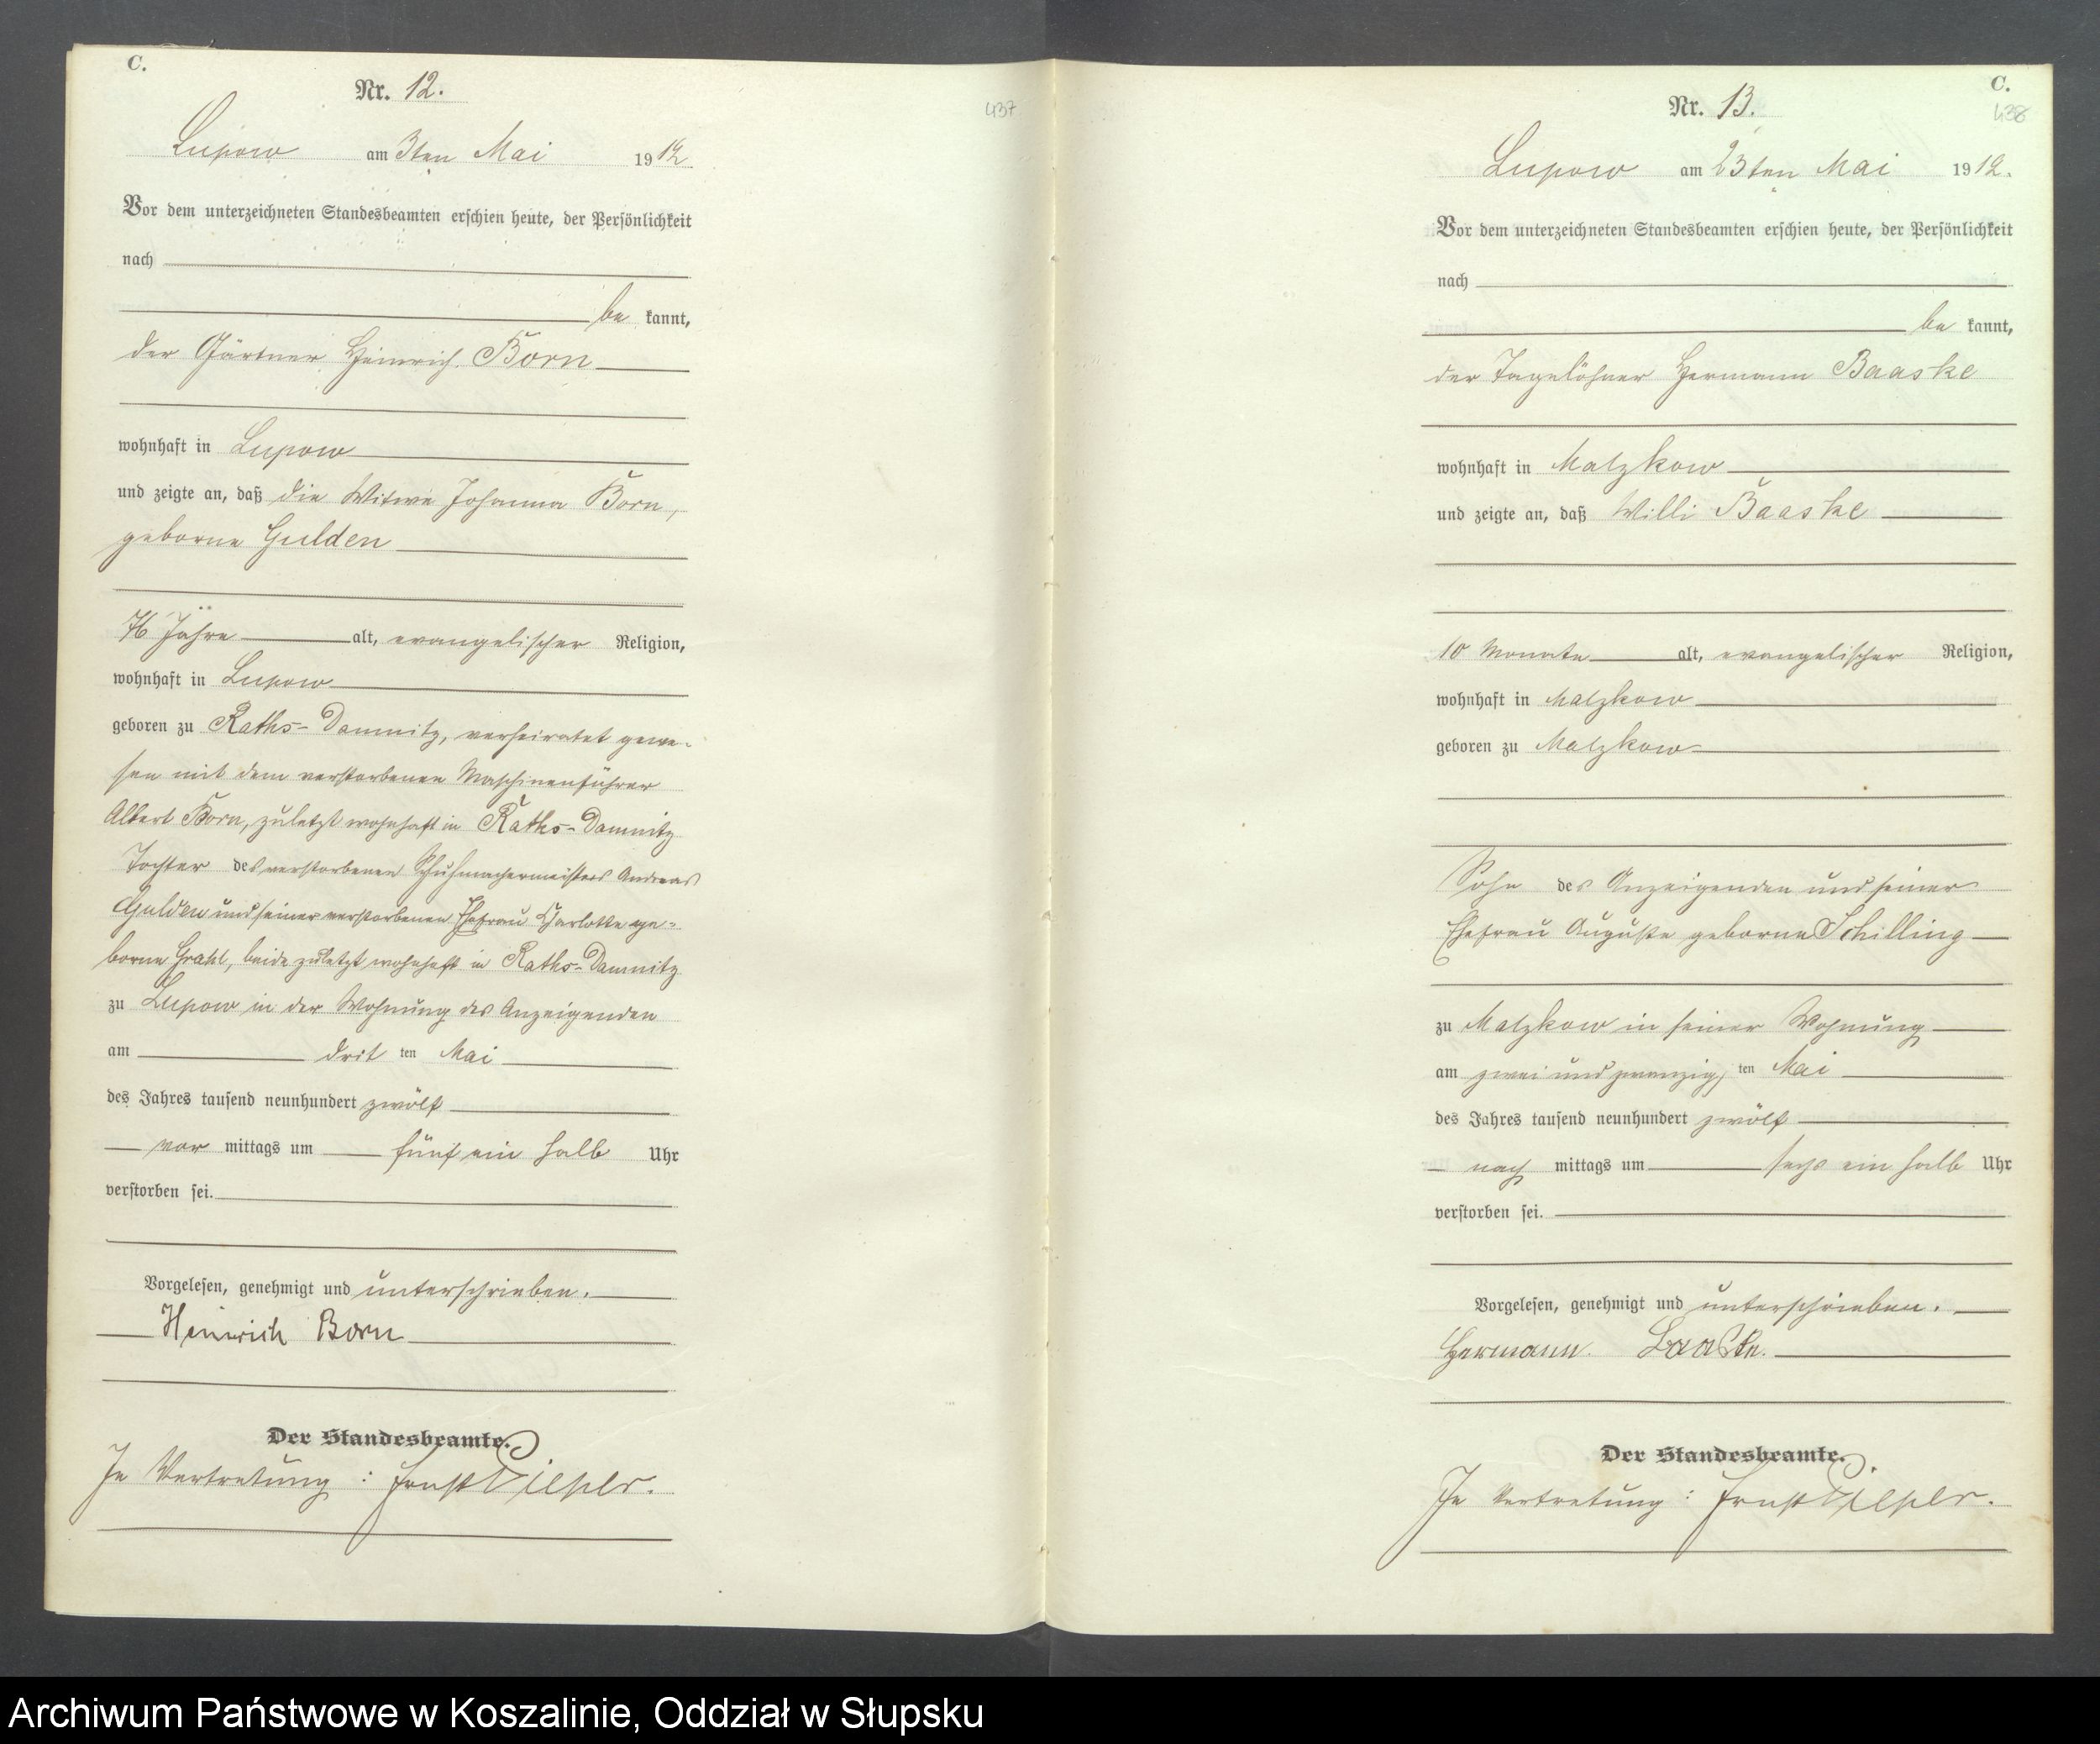 C.
Nr. 12.
437
Lupow am 3ten Mai 1912
Vor dem unterzeichneten Standesbeamten erschien heute, der Persönlichkeit
nach
be kannt,
der Gärtner Heinrich Born
wohnhaft in Lupow
und zeigte an, daß die Witwe Johanna Born,
geborne Gulden
76 Jahre alt, evangelischer Religion,
wohnhaft in Lupow
geboren zu Raths-Damnitz, verheiratet gewe-
sen mit dem verstorbenen Maschinenführer
Albert Born, zuletzt wohnhaft in Raths-Damnitz
Tochter des verstorbenen Schuhmachermeisters Andreas
Gulden und seiner verstorbenen Ehefrau Charlotte ge-
borne Grahl, beide zuletzt wohnhaft in Raths-Damnitz
zu Lupow in der Wohnung des Anzeigenden
am drit ten Mai
des Jahres tausend neunhundert zwölf
vor mittags um fünf ein halb Uhr
verstorben sei.
Vorgelesen, genehmigt und unterschrieben.
Heinrich Born
Der Standesbeamte.
In Vertretung: Ernst Piepler.
C.
Nr. 13.
438
Lupow am 23ten Mai 1912.
Vor dem unterzeichneten Standesbeamten erschien heute, der Persönlichkeit
nach
be kannt,
der Tagelöhner Hermann Baaske
wohnhaft in Malzkow
und zeigte an, daß Willi Baaske
10 Monate alt, evangelischer Religion,
wohnhaft in Malzkow
geboren zu Malzkow
Sohn des Anzeigenden und seiner
Ehefrau Auguste geborne Schilling
zu Malzkow in seiner Wohnung
am zwei und zwanzig ten Mai
des Jahres tausend neunhundert zwölf
nach mittags um sechs ein halb Uhr
verstorben sei.
Vorgelesen, genehmigt und unterschrieben.
Hermann Baaske.
Der Standesbeamte.
In Vertretung: Ernst Piepler.
Archiwum Państwowe w Koszalinie, Oddział w Słupsku